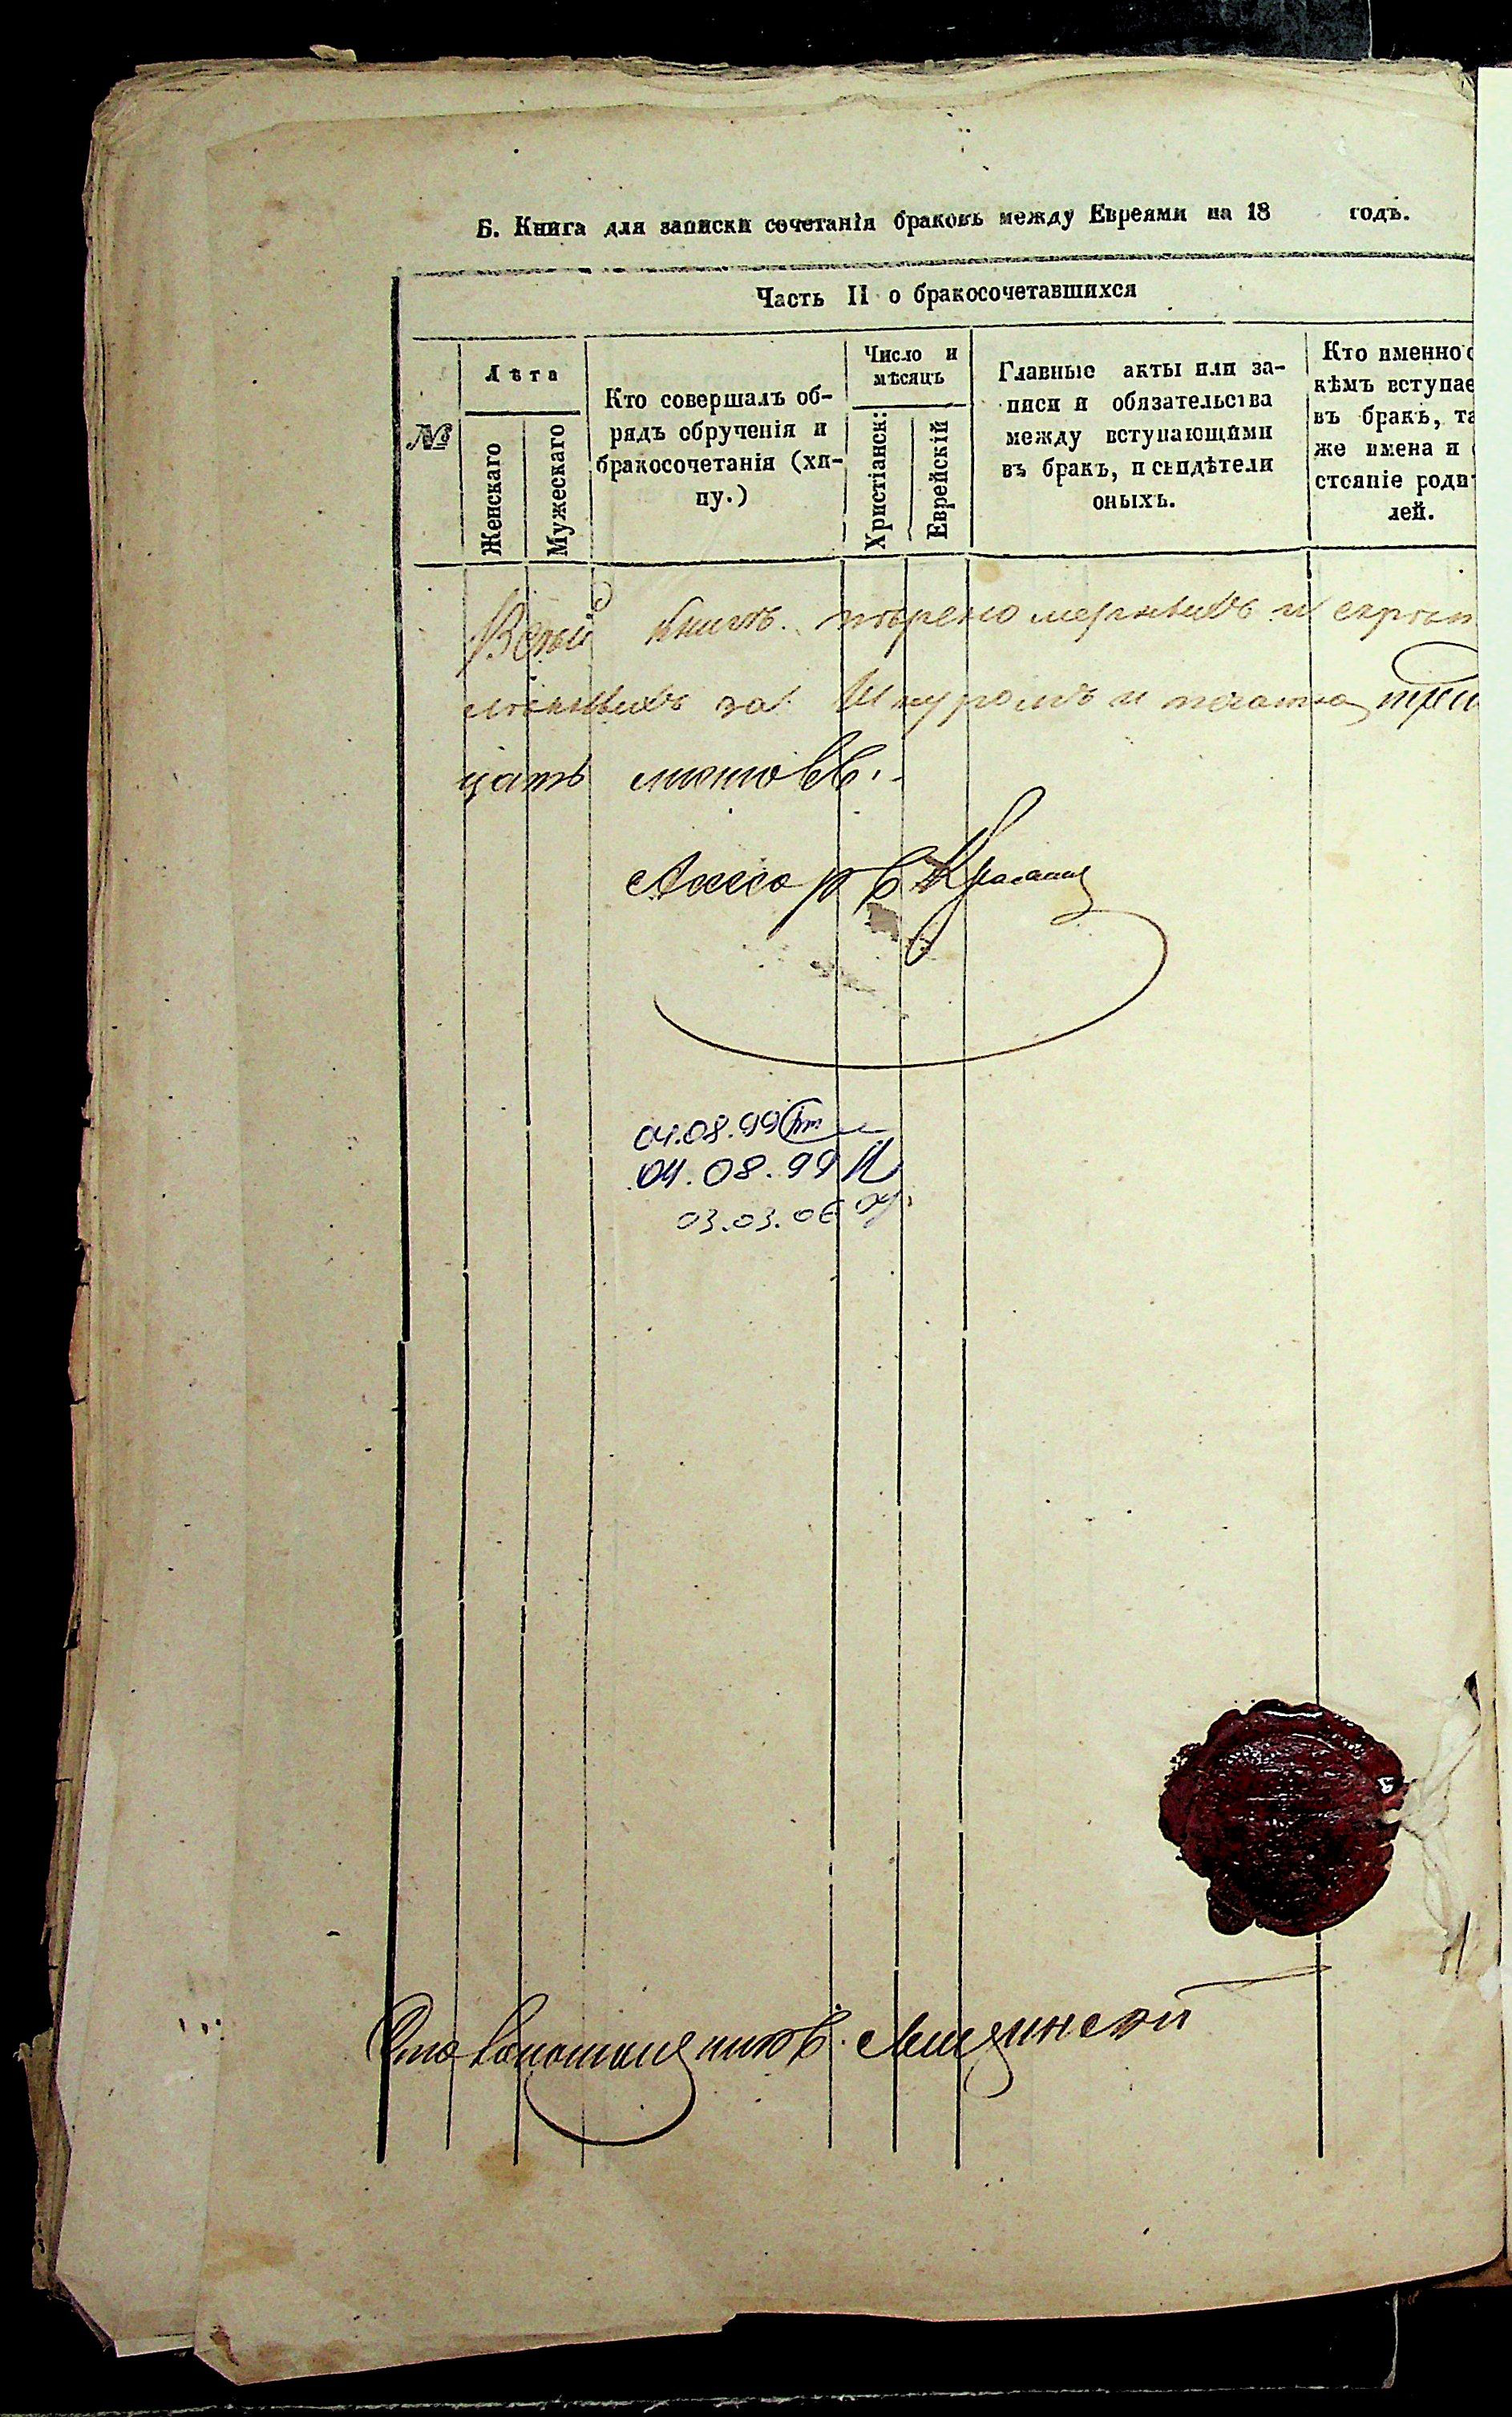 Б. Книга для записки сочетанія браковъ между Евреями на 18 годъ.
Часть II о бракосочетавшихся
№
Лѣта
Женскаго
Мужескаго
Кто совершалъ об-
рядъ обрученія и
бракосочетанія (хп-
пу.)
Число и
мѣсяцъ
Христіанск:
Еврейскій
Главные акты или за-
писи и обязательства
между вступающими
въ бракъ, и свидѣтели
оныхъ.
Кто именно с
кѣмъ вступае
въ бракъ, та
же имена и с
стояніе роди
лей.
В сей книгѣ и
за Шнуромъ и
цать листовъ.
04.08.99
04.08.99
03.03.06